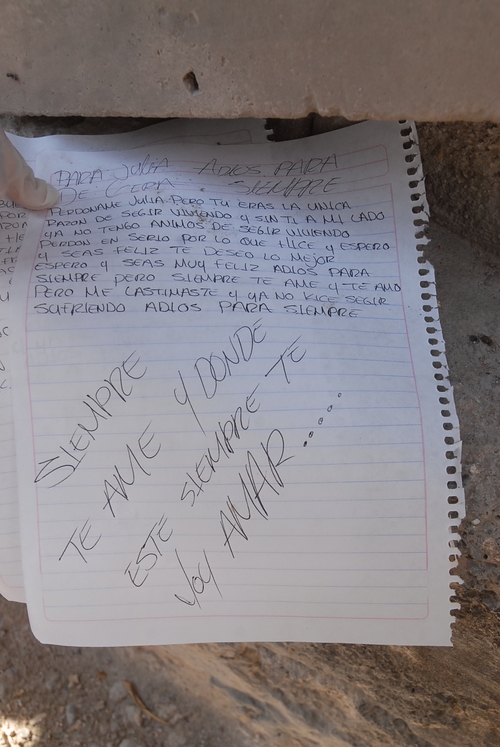 PARA JULIA ADIOS PARA
DE SIEMPRE
PERDONAME JULIA PERO TU ERAS LA UNICA
RAZON DE SEGIR VIVIENDO Y SIN TI A MI LADO
YA NO TENGO ANIMOS DE SEGIR VIVIENDO
PERDON EN SERIO POR LO QUE HICE Y ESPERO
Y SEAS FELIZ TE DESEO LO MEJOR
ESPERO Y SEAS MUY FELIZ ADIOS PARA
SIEMPRE PERO SIEMPRE TE AME Y TE AMO
PERO ME LASTIMASTE Y YA NO KICE SEGIR
SUFRIENDO ADIOS PARA SIEMPRE
SIEMPRE
TE AME Y DONDE
ESTE SIEMPRE TE
VOY AMAR......